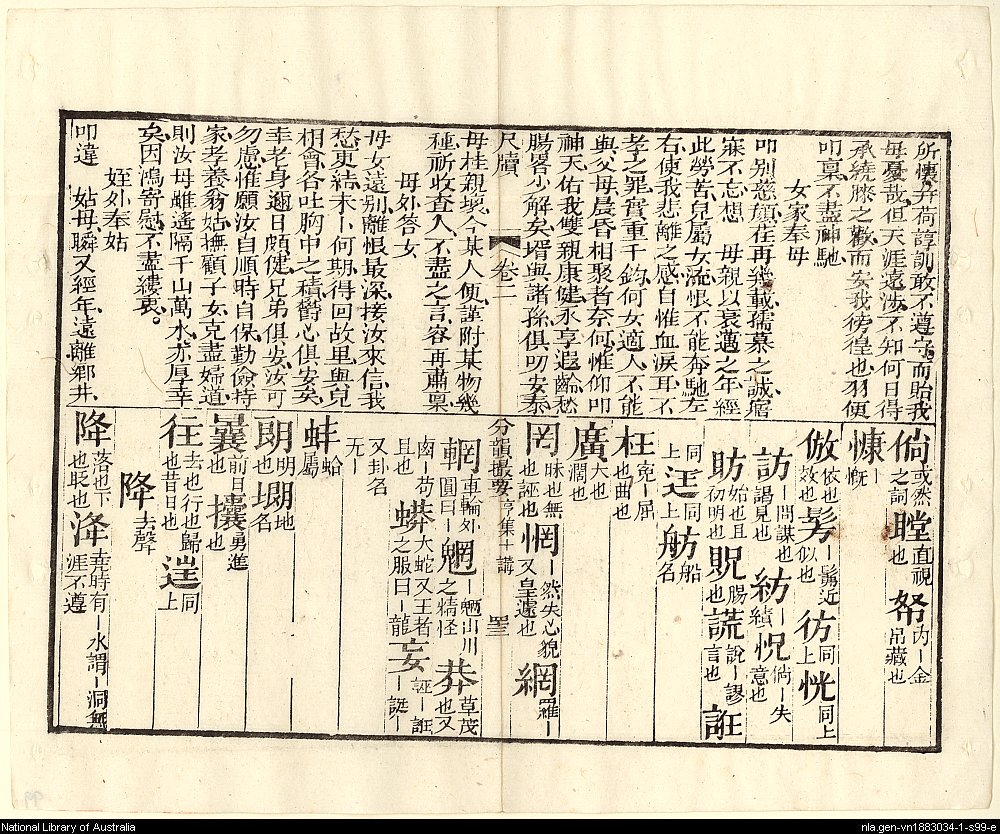 所懷并荷諄訓敢不遵守而貽我
母憂哉但天涯遠涉不知何日得
承繞膝之歡而安我徬徨也羽便
叩稟不盡神馳
女家奉母
叩別慈顏荏再幾載孺慕之誠宿
寐不忘想 母親以衰邁之年經
此勞苦兒屬女流恨不能奔馳左
右使我悲離之感自惟血淚耳不
孝之罪實重千鈞何女適人不能
與父母晨昏相聚者奈何惟仰叩
神天佑我雙親康健永享遐齡愁
腸畧少解矣壻與諸孫俱叨安泰
尺牘 卷二
母桂親壞今某人便謹附某物幾
種祈收查入不盡之言容再肅稟
母外答女
母女遠別離恨最深接汝來信我
愁更結未卜何期得回故里與兒
相會各吐胸中之積欝心俱安矣
幸老身邇日頗健兄弟俱安汝可
勿慮惟願汝自順時自保勤儉持
家孝養翁姑撫顧子女克盡婦道
則汝母雖遙隔千山萬水亦厚幸
矣因鴻寄慰不盡縷衷。
姪外奉姑
叩違 姑母瞬又經年遠離鄉井
倘或然之詞 瞠直視也 帑內丨金帛藏也
慷丨慨
倣依也效也 髣丨髴近似也 彷同上 恍同上
訪丨問謀也謁見也 紡績 怳倘丨失意也
昉始也且初明也 貺賜也 謊說丨謬言也 誑
同上 迋同上 舫船名
枉寃丨屈也曲也
廣大也濶也
罔昧也無也誣也 惘丨然失心貌又皇遽也 網羅丨
分韻撮要亨集十講 四三
輞車輪外圓曰丨 魍丨魎山川之精怪 莽草茂也又
鹵丨苟且也 蟒大蛇又王者之服曰丨龍 妄誣丨誑丨
又卦名无丨
蚌蛤屬
朗明也 塱地名
曩前日也 攘勇進也
往去也行也歸也昔日也 迬同上
降去聲
降落也下也㫰也 洚堯時有丨水謂丨洞無涯不遵
National Library of Australia
nla.gen-vn1883034-1-s99-e